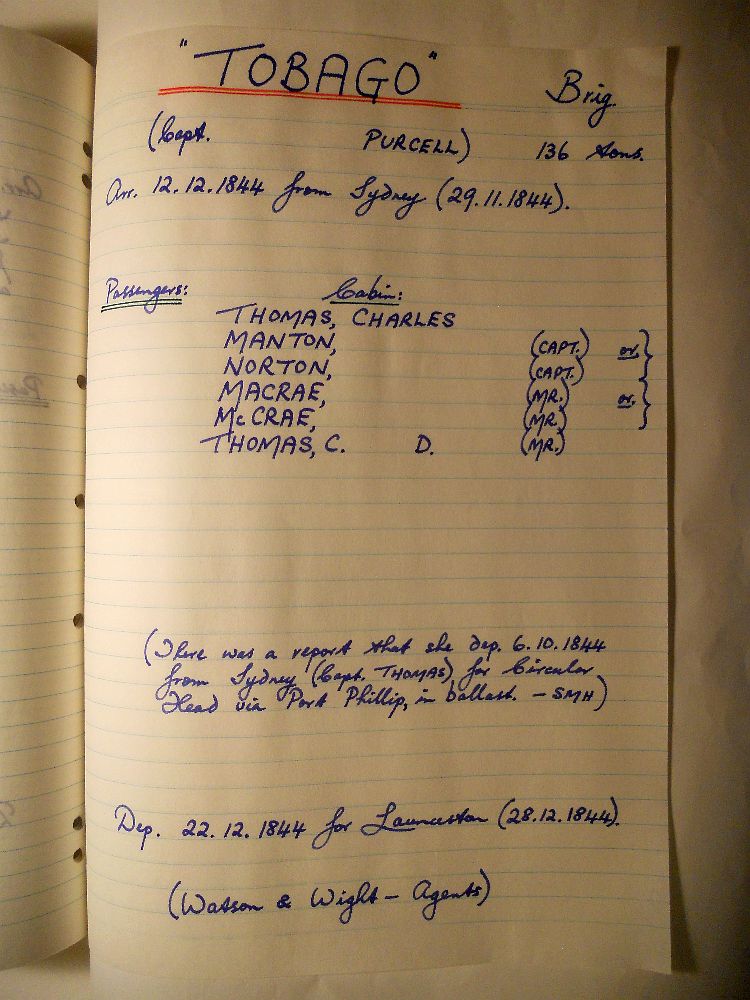 "TOBAGO" Brig.
(Capt. PURCELL) 136 tons.
Arr. 12.12.1844 from Sydney (29.11.1844).
Passengers: Cabin:
THOMAS, CHARLES
MANTON, (CAPT.) or }
NORTON, (CAPT.)
MACRAE, (MR.) or }
McCRAE, (MR.)
THOMAS, C. D. (MR.)
(There was a report that she dep. 6.10.1844
from Sydney (Capt. THOMAS) for Circular
Head via Port Phillip, in ballast. - SMH)
Dep. 22.12.1844 for Launceston (28.12.1844).
(Watson & Wight - Agents)